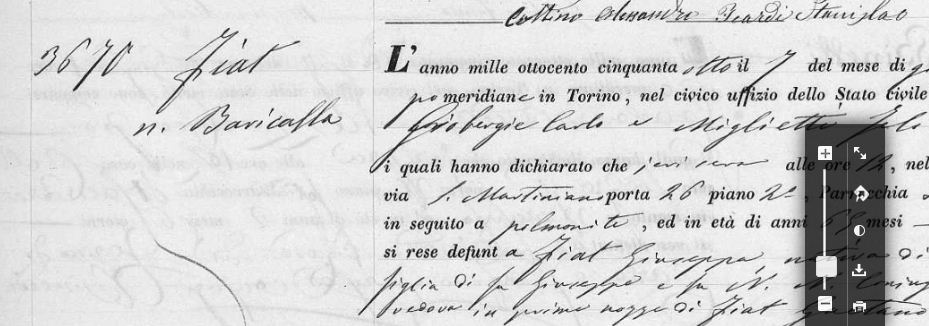 Cottino Alessandro Picardi Stanislao
3670 Fiat
n. Baricalla
L'anno mille ottocento cinquanta otto il 7 del mese di
pomeridiane in Torino, nel civico uffizio dello Stato Civile
Carlo e Miglietti
i quali hanno dichiarato che jeri sera alle ore 12, nel
via S. Martiniano porta 26 piano 2º, Parrocchia
in seguito a polmonite, ed in età di anni mesi
si rese defunta Fiat Giuseppa nativa di
figlia di fu Giuseppe e fu N. N.
vedova in prime nozze di Fiat Gaetano